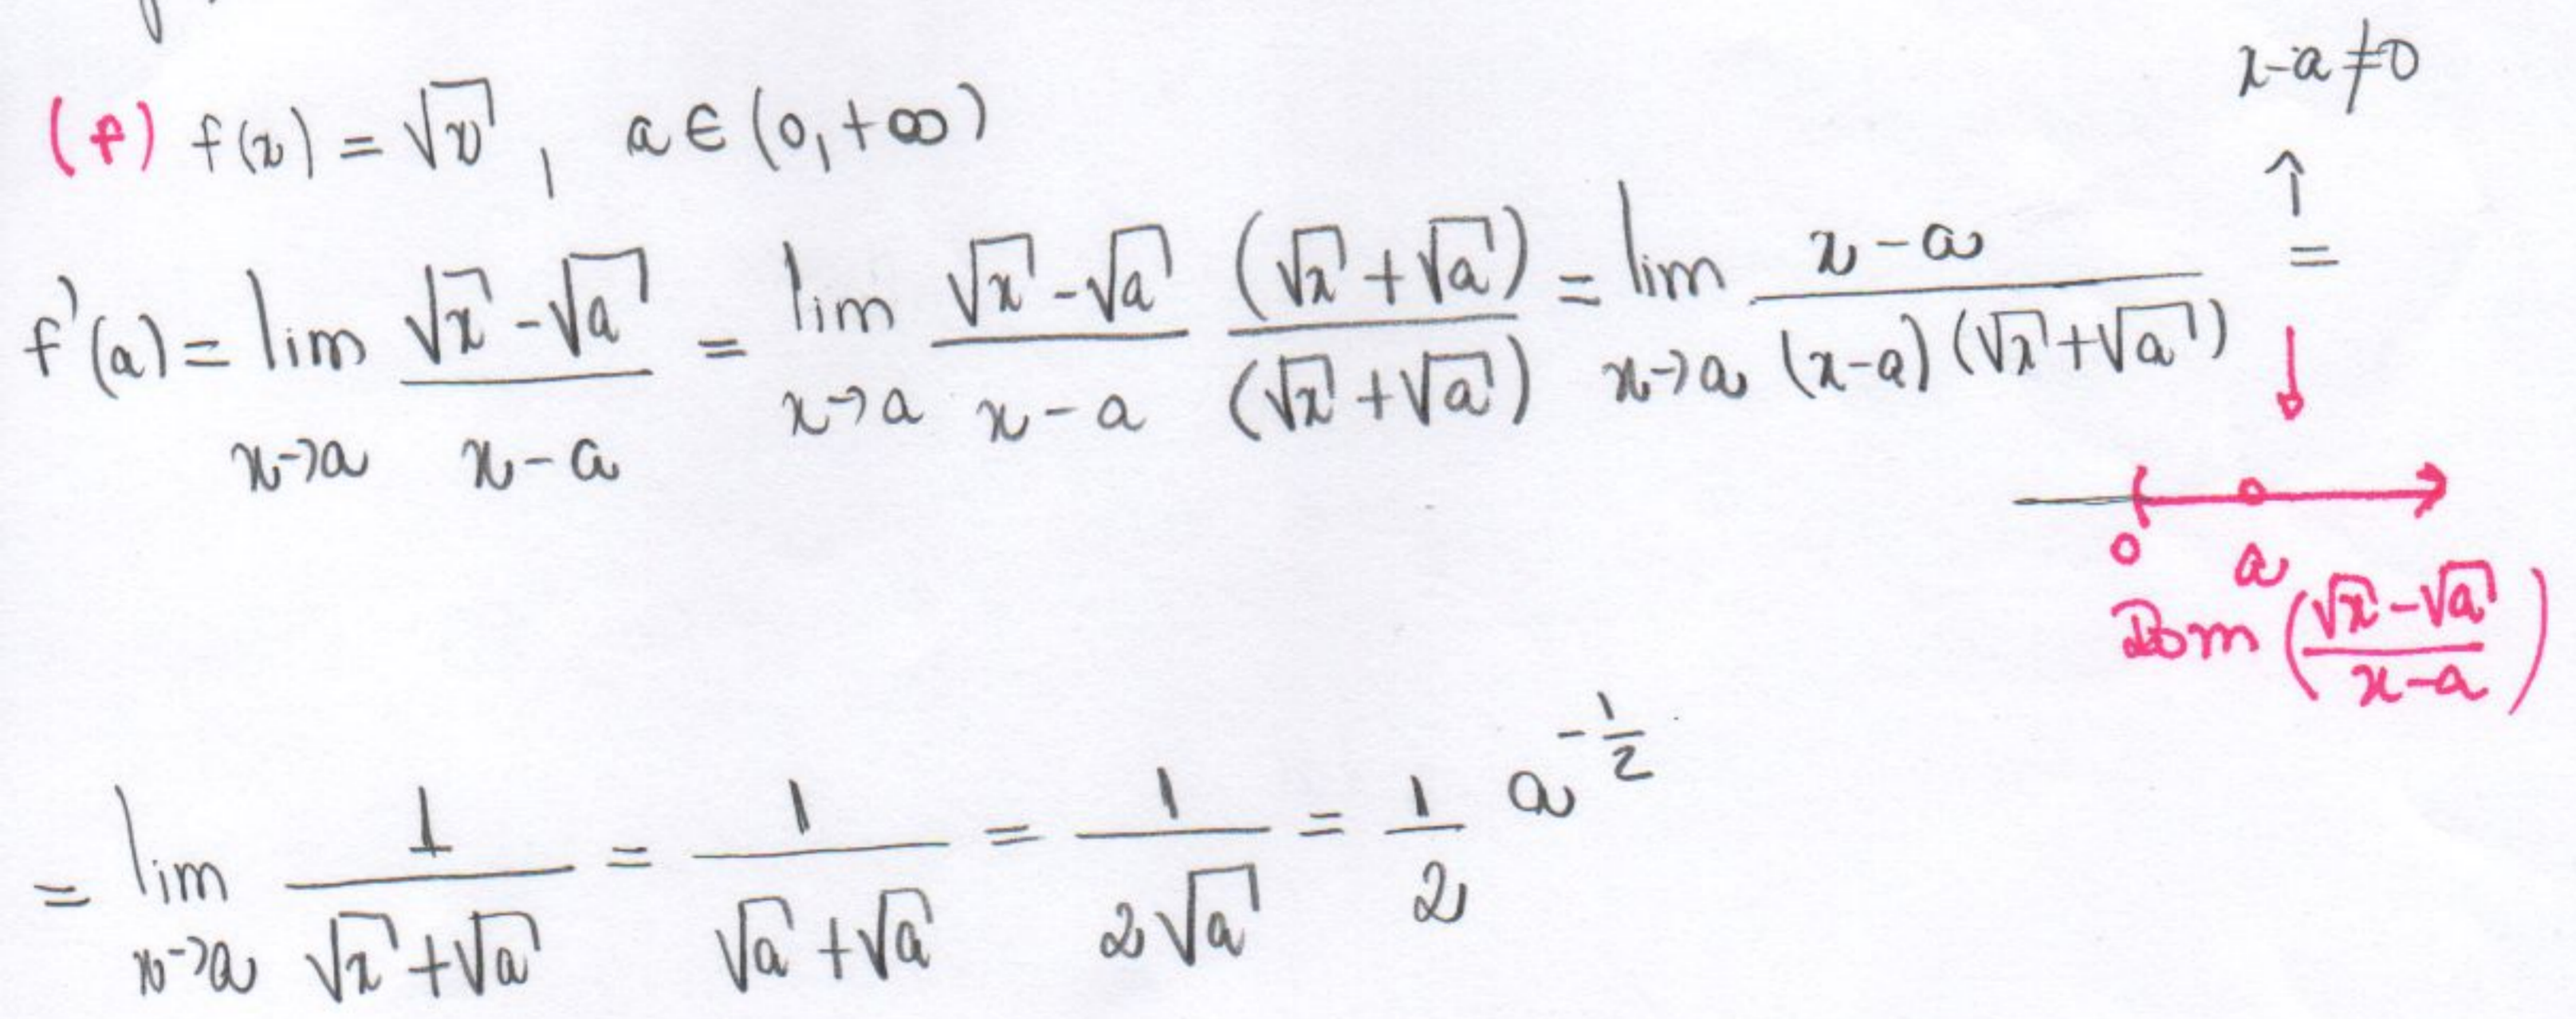 (f) f(x) = √x , a ∈ (0, +∞)
x-a ≠ 0
↑
f'(a) = lim x→a (√x - √a)/(x - a) = lim x→a (√x - √a)/(x - a) (√x + √a)/(√x + √a) = lim x→a (x - a)/((x-a)(√x + √a)) =
↓
0 a
Dom ((√x - √a)/(x-a))
= lim x→a 1/(√x + √a) = 1/(√a + √a) = 1/(2√a) = 1/2 a^(-1/2)